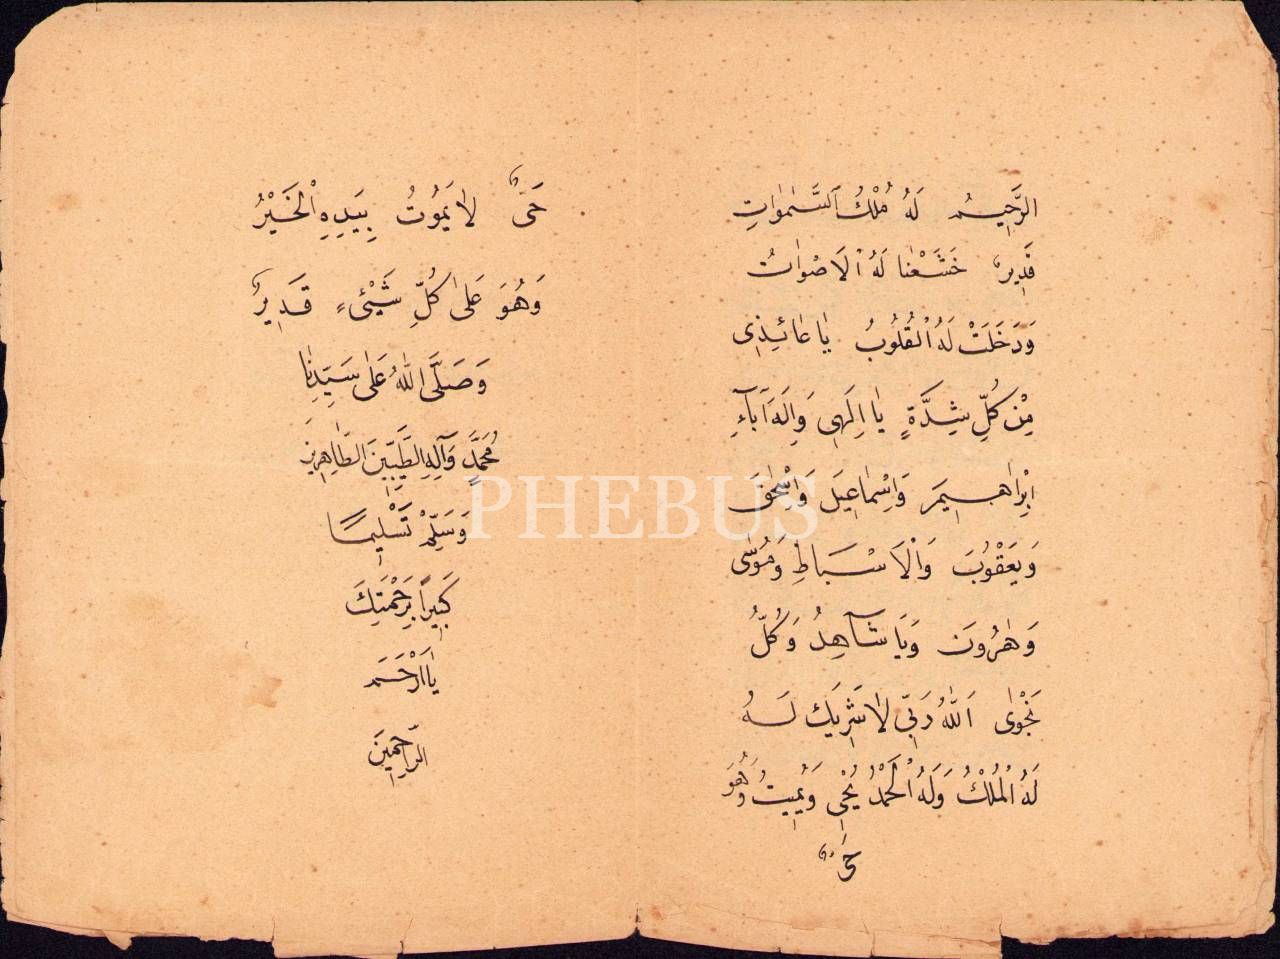 الرَّحِيمُ لَهُ مُلْكُ السَّمٰوَاتِ
قَدِيرٌ خَشَعْنَا لَهُ الْاَصْوَاتُ
وَدَخَلَتْ لَهُ الْقُلُوبُ يَا عَائِذِى
مِنْ كُلِّ شِدَّةٍ يَا اِلٰهِى وَاِلَهَ آبَاءِ
اِبْرَاهِيمَ وَاِسْمَاعِيلَ وَاِسْحٰقَ
وَيَعْقُوبَ وَالْاَسْبَاطِ وَمُوسٰى
وَهٰرُونَ وَيَا شَاهِدُ وَكُلُّ
نَجْوٰى اَللّٰهُ رَبِّى لَا شَرِيكَ لَهُ
لَهُ الْمُلْكُ وَلَهُ الْحَمْدُ يُحْيِى وَيُمِيتُ وَهُوَ
حَىٌّ
حَىٌّ لَا يَمُوتُ بِيَدِهِ الْخَيْرُ
وَهُوَ عَلٰى كُلِّ شَيْئٍ قَدِيرٌ
وَصَلَّى اللّٰهُ عَلٰى سَيِّدِنَا
مُحَمَّدٍ وَآلِهِ الطَّيِّبِينَ الطَّاهِرِينَ
وَسَلِّمْ تَسْلِيمًا
كَبِيرًا بِرَحْمَتِكَ
يَا اَرْحَمَ
الرَّاحِمِينَ
PHEBUS